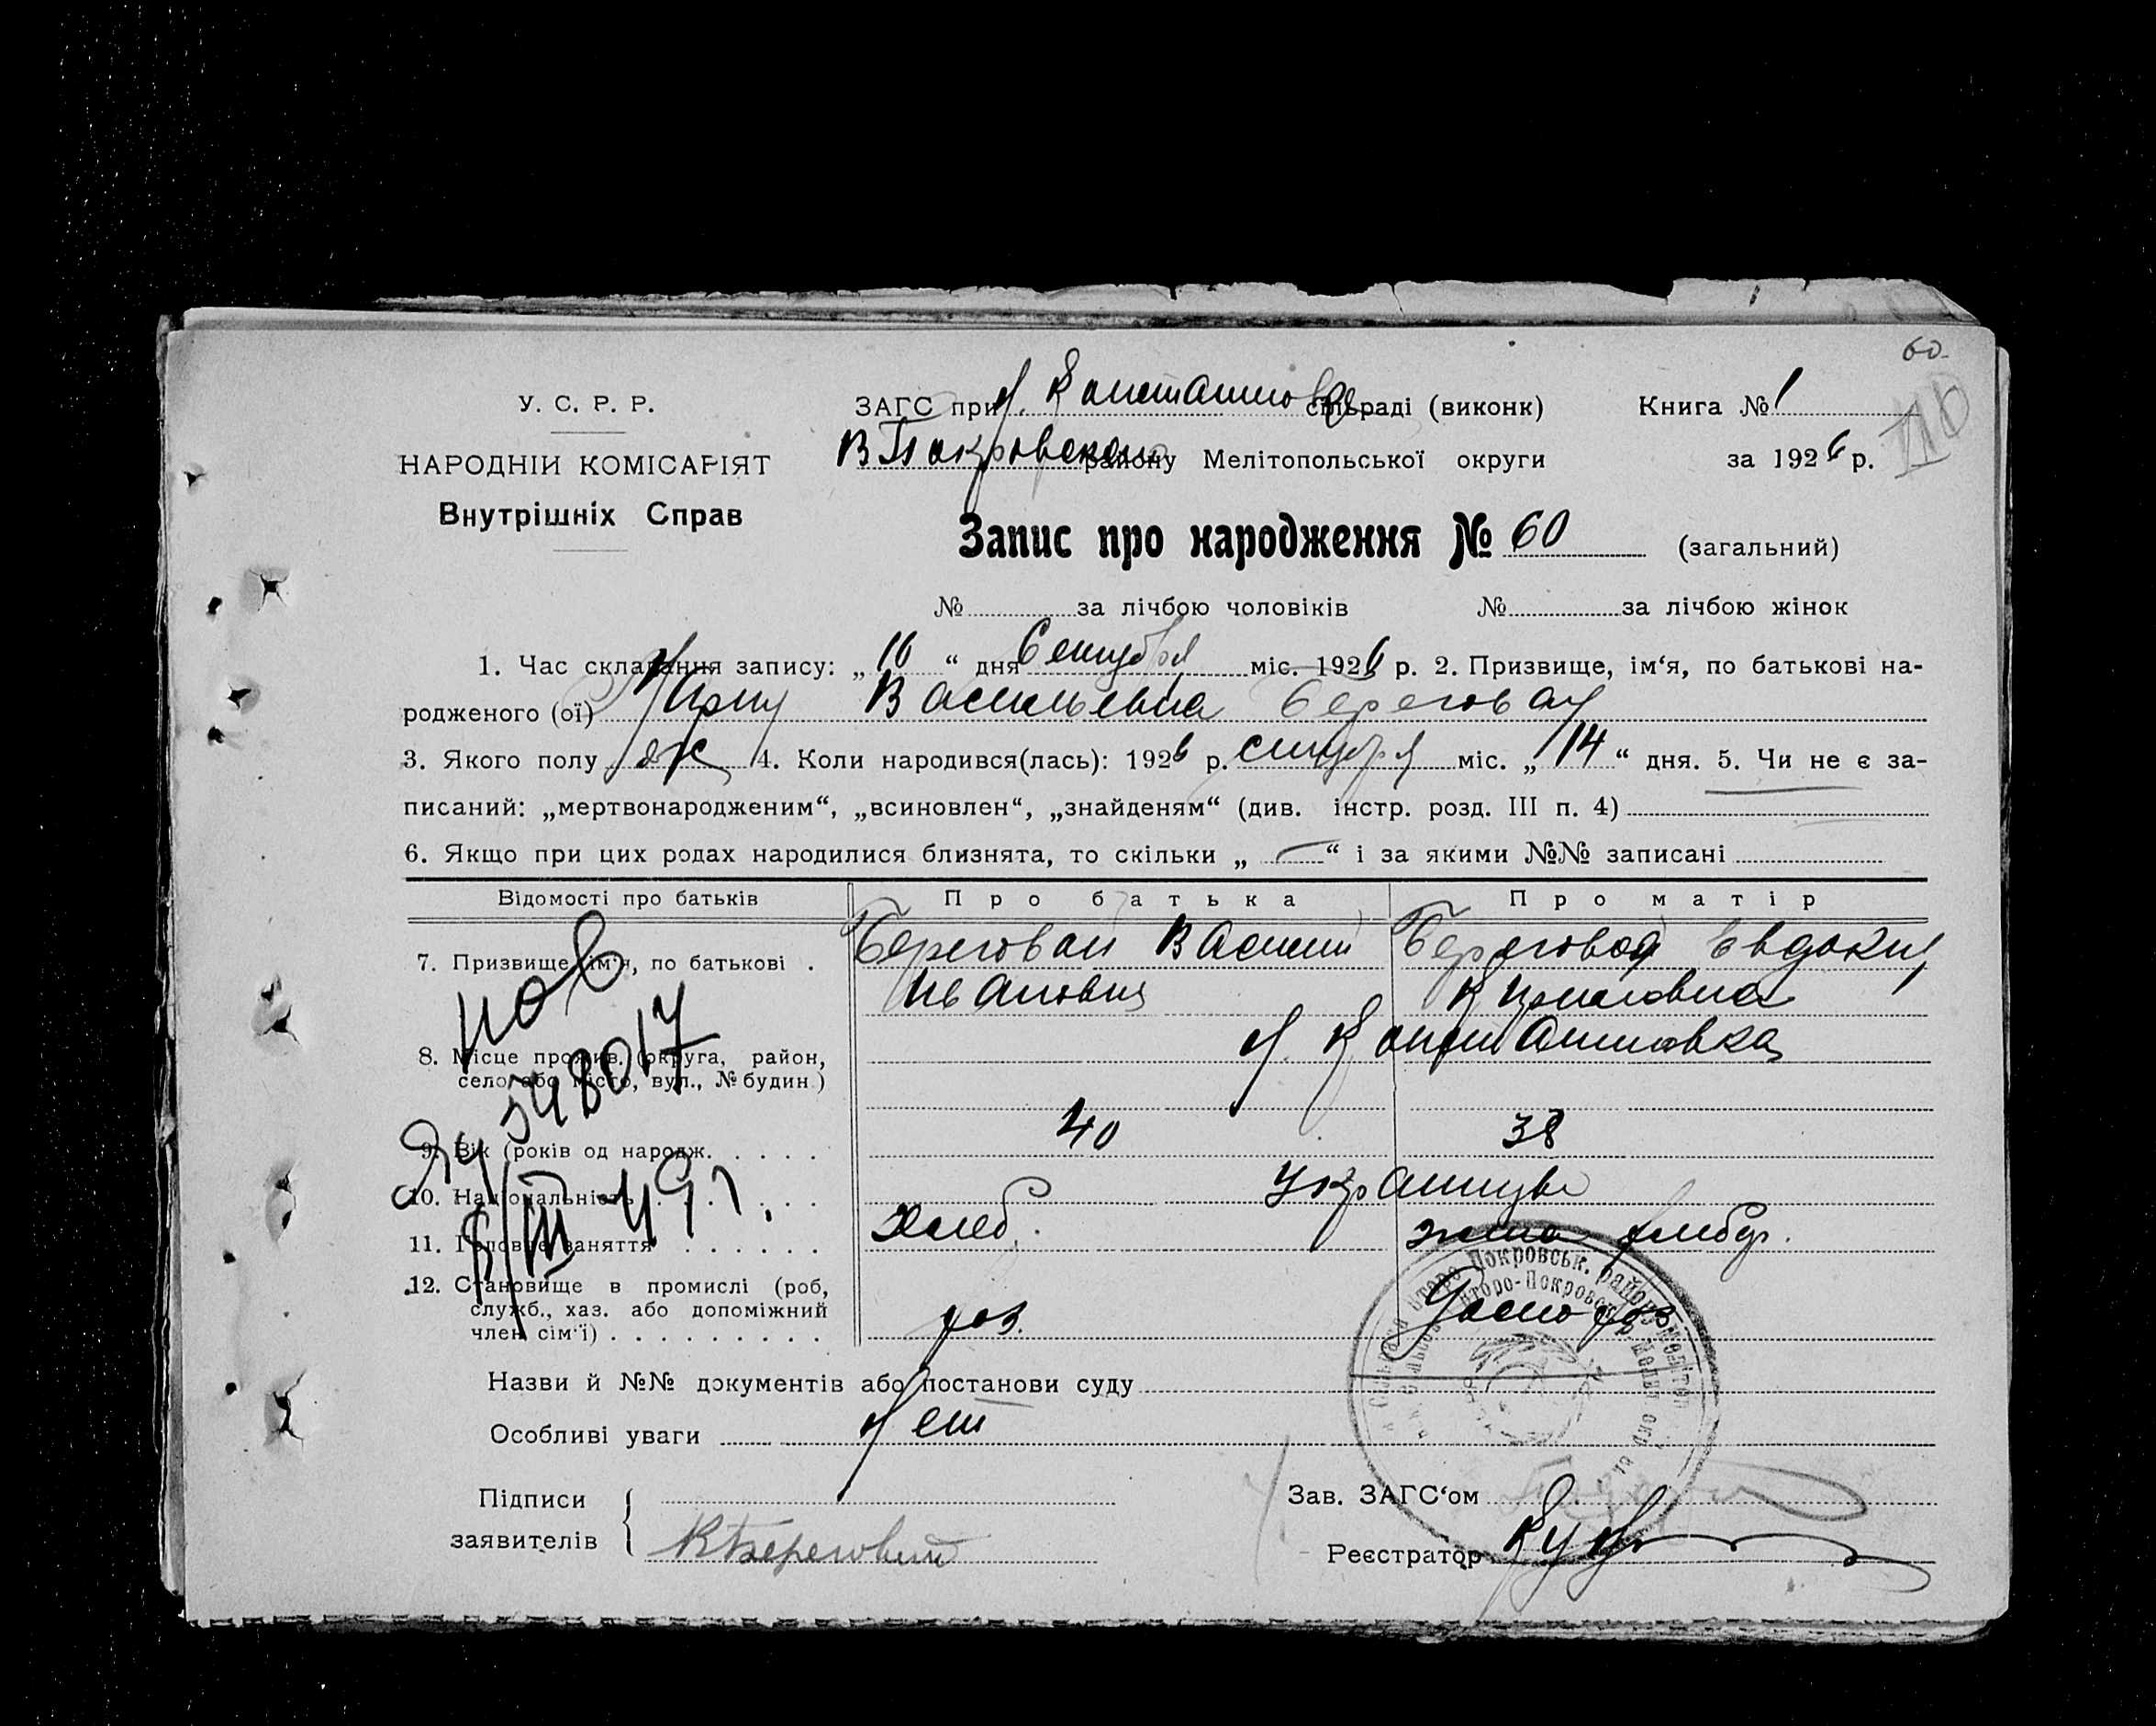 60
У. С. Р. Р.
НАРОДНІЙ КОМІСАРІЯТ
Внутрішніх Справ
ЗАГС при Н. Константиновс сільраді (виконк)
В Покровского району Мелітопольської округи
Книга № 1
за 1926 р.
Запис про народження № 60 (загальний)
№ за лічбою чоловіків № за лічбою жінок
1. Час складання запису: „16“ дня Сентября міс. 1926 р. 2. Призвище, ім‘я, по батькові на-
родженого (ої) Васильевна Береговая
3. Якого полу ж 4. Коли народився(лась): 1926 р. сентября міс. „14“ дня. 5. Чи не є за-
писаний: „мертвонародженим“, „всиновлен“, „знайденям“ (див. інстр. розд. III п. 4)
6. Якщо при цих родах народилися близнята, то скільки „—“ і за якими №№ записані
Відомості про батьків Про батька Про матір
7. Призвище, ім‘я, по батькові . Береговой Василий Береговая Евдокия
Иванович
8. Місце прожив. (округа, район, Н. Константиновка
село або місто, вул., № будин.)
пов
548017
9. Вік (років од народж. . . . . . 40 38
10. Національність . . . . . Украинцы
11. Головне заняття . . . . . . Хлеб. жена хлебор.
12. Становище в промислі (роб,
служб., хаз. або допоміжний
член сім‘ї) . . . . . . . . . хоз.
Назви й №№ документів або постанови суду
Особливі уваги Нет
Підписи
заявителів Береговий
Зав. ЗАГС‘ом
Реєстратор